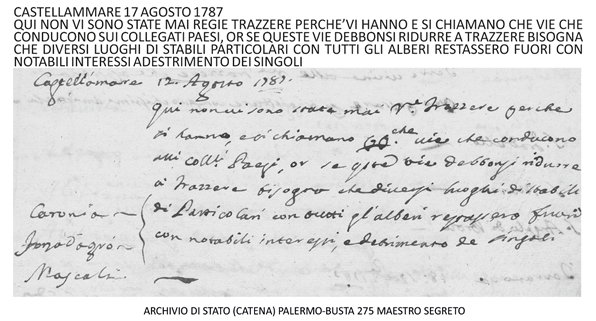 CASTELLAMMARE 17 AGOSTO 1787
QUI NON VI SONO STATE MAI REGIE TRAZZERE PERCHE'VI HANNO E SI CHIAMANO CHE VIE CHE
CONDUCONO SUI COLLEGATI PAESI, OR SE QUESTE VIE DEBBONSI RIDURRE A TRAZZERE BISOGNA
CHE DIVERSI LUOGHI DI STABILI PARTICOLARI CON TUTTI GLI ALBERI RESTASSERO FUORI CON
NOTABILI INTERESSI ADESTRIMENTO DEI SINGOLI
Castellamare 12. Agosto 1787.
qui non vi sono state mai Re. Trazzere perche
vi hanno, e si chiamano che vie che conducono
alli coll.ti Paesi, or se queste vie debbonsi ridurre
a Trazzere bisogna che diversi luoghi di stabili
Caronia di Particolari con tutti gl'alberi restassero fuori
con notabili interessi, e detrimento de singoli
Mascali
ARCHIVIO DI STATO (CATENA) PALERMO-BUSTA 275 MAESTRO SEGRETO